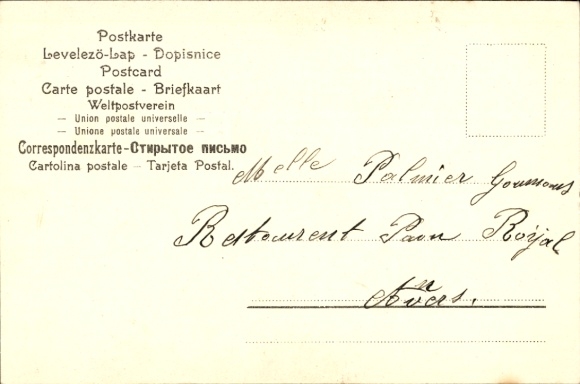 Postkarte
Levelező-Lap - Dopisnice
Postcard
Carte postale - Briefkaart
Weltpostverein
— Union postale universelle —
— Unione postale universale —
Correspondenzkarte-Открытое письмо
Cartolina postale — Tarjeta Postal.
Melle Palmier
Restourent Paon Roÿal
Anvers.